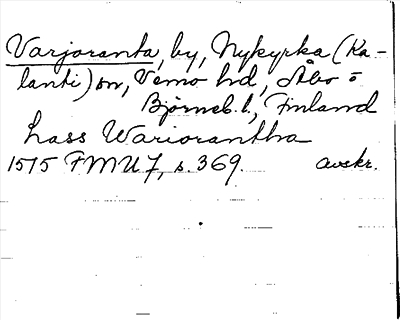 Varjoranta, by, Nykyrka (Ka-
lanti) sn, Vemo hd, Åbo o
Björneb. l., Finland
Lass Wariorantha
1515 FMU 7, s. 369. avskr.